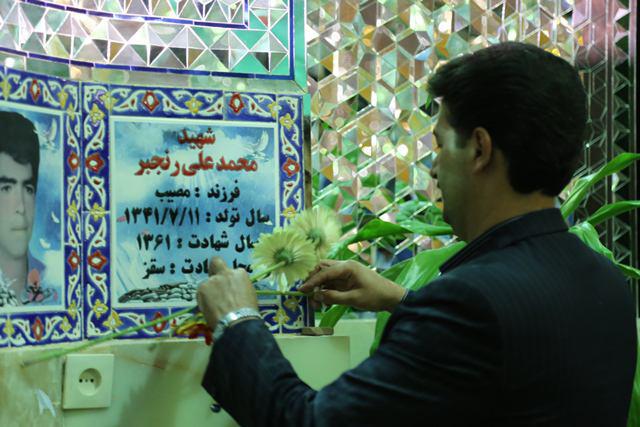 شهید
محمدعلی رنجبر
فرزند : مصیب
سال تولد : ۱۳۴۱/۷/۱۱
سال شهادت : ۱۳۶۱
شهادت : سقز